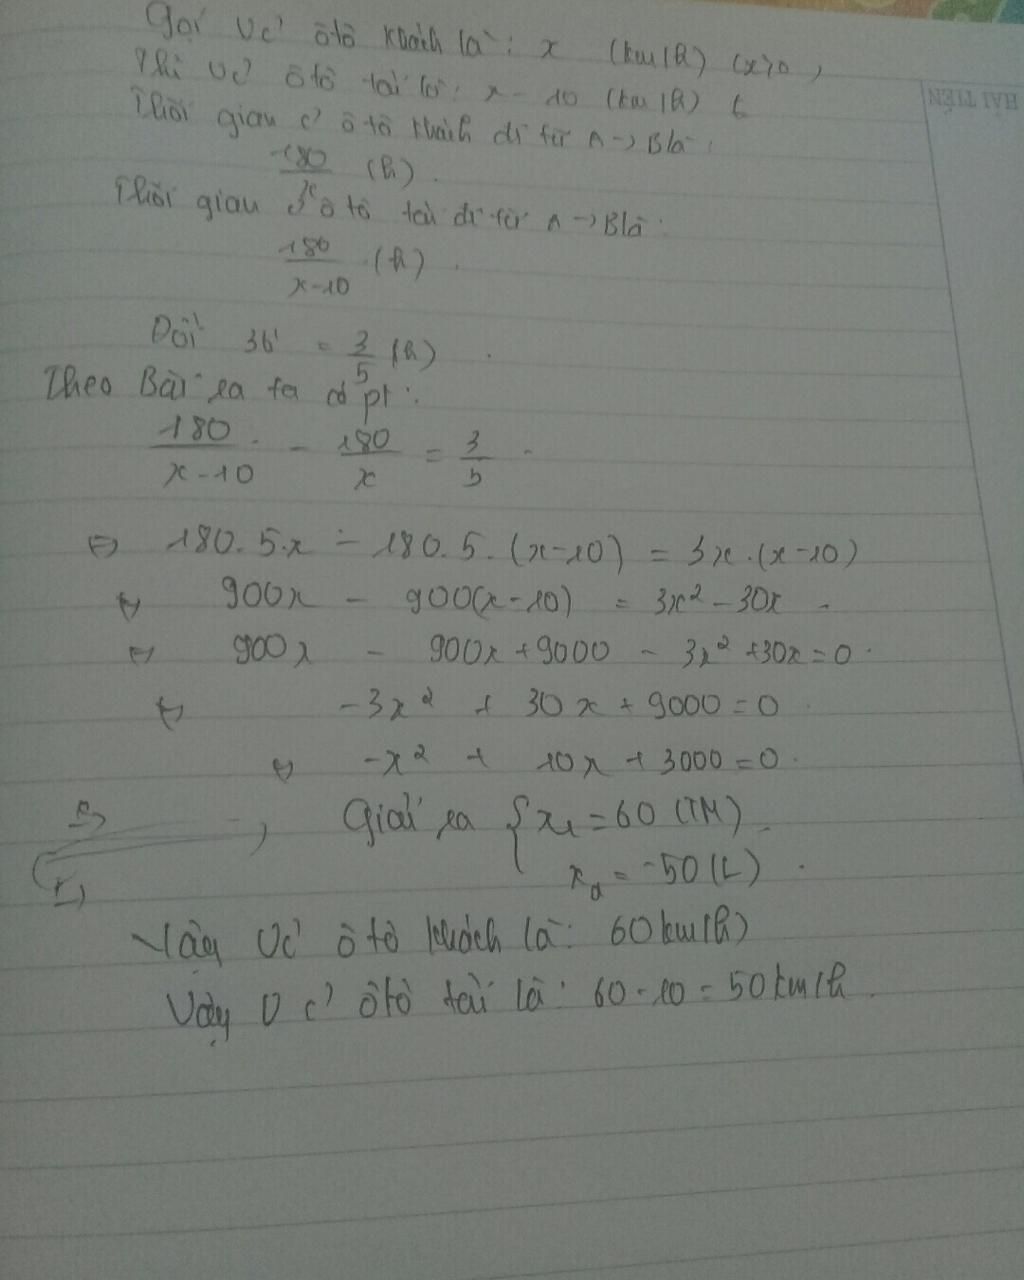 Gọi vc' ôtô khách là: x (km/h) (x>0)
Thì vc' ôtô tải là: x - 10 (km/h)
Thời gian c' ô tô khách đi từ A -> B là:
180/x (h).
Thời gian ô tô tải đi từ A -> B là:
180/x-10 (h).
Đổi 36' = 3/5 (h).
Theo Bài ra ta có pt:
180/x-10 - 180/x = 3/5.
⇔ 180.5.x - 180.5.(x-10) = 3x.(x-10)
⇔ 900x - 900(x-10) = 3x² - 30x
⇔ 900x - 900x + 9000 - 3x² + 30x = 0.
⇔ -3x² + 30x + 9000 = 0.
⇔ -x² + 10x + 3000 = 0.
Giải ra { x₁ = 60 (TM)
x₂ = -50 (L).
Vậy vc' ô tô khách là: 60 km/h)
Vậy vc' ôtô tải là: 60-10 = 50 km/h.
HẢI TIẾN